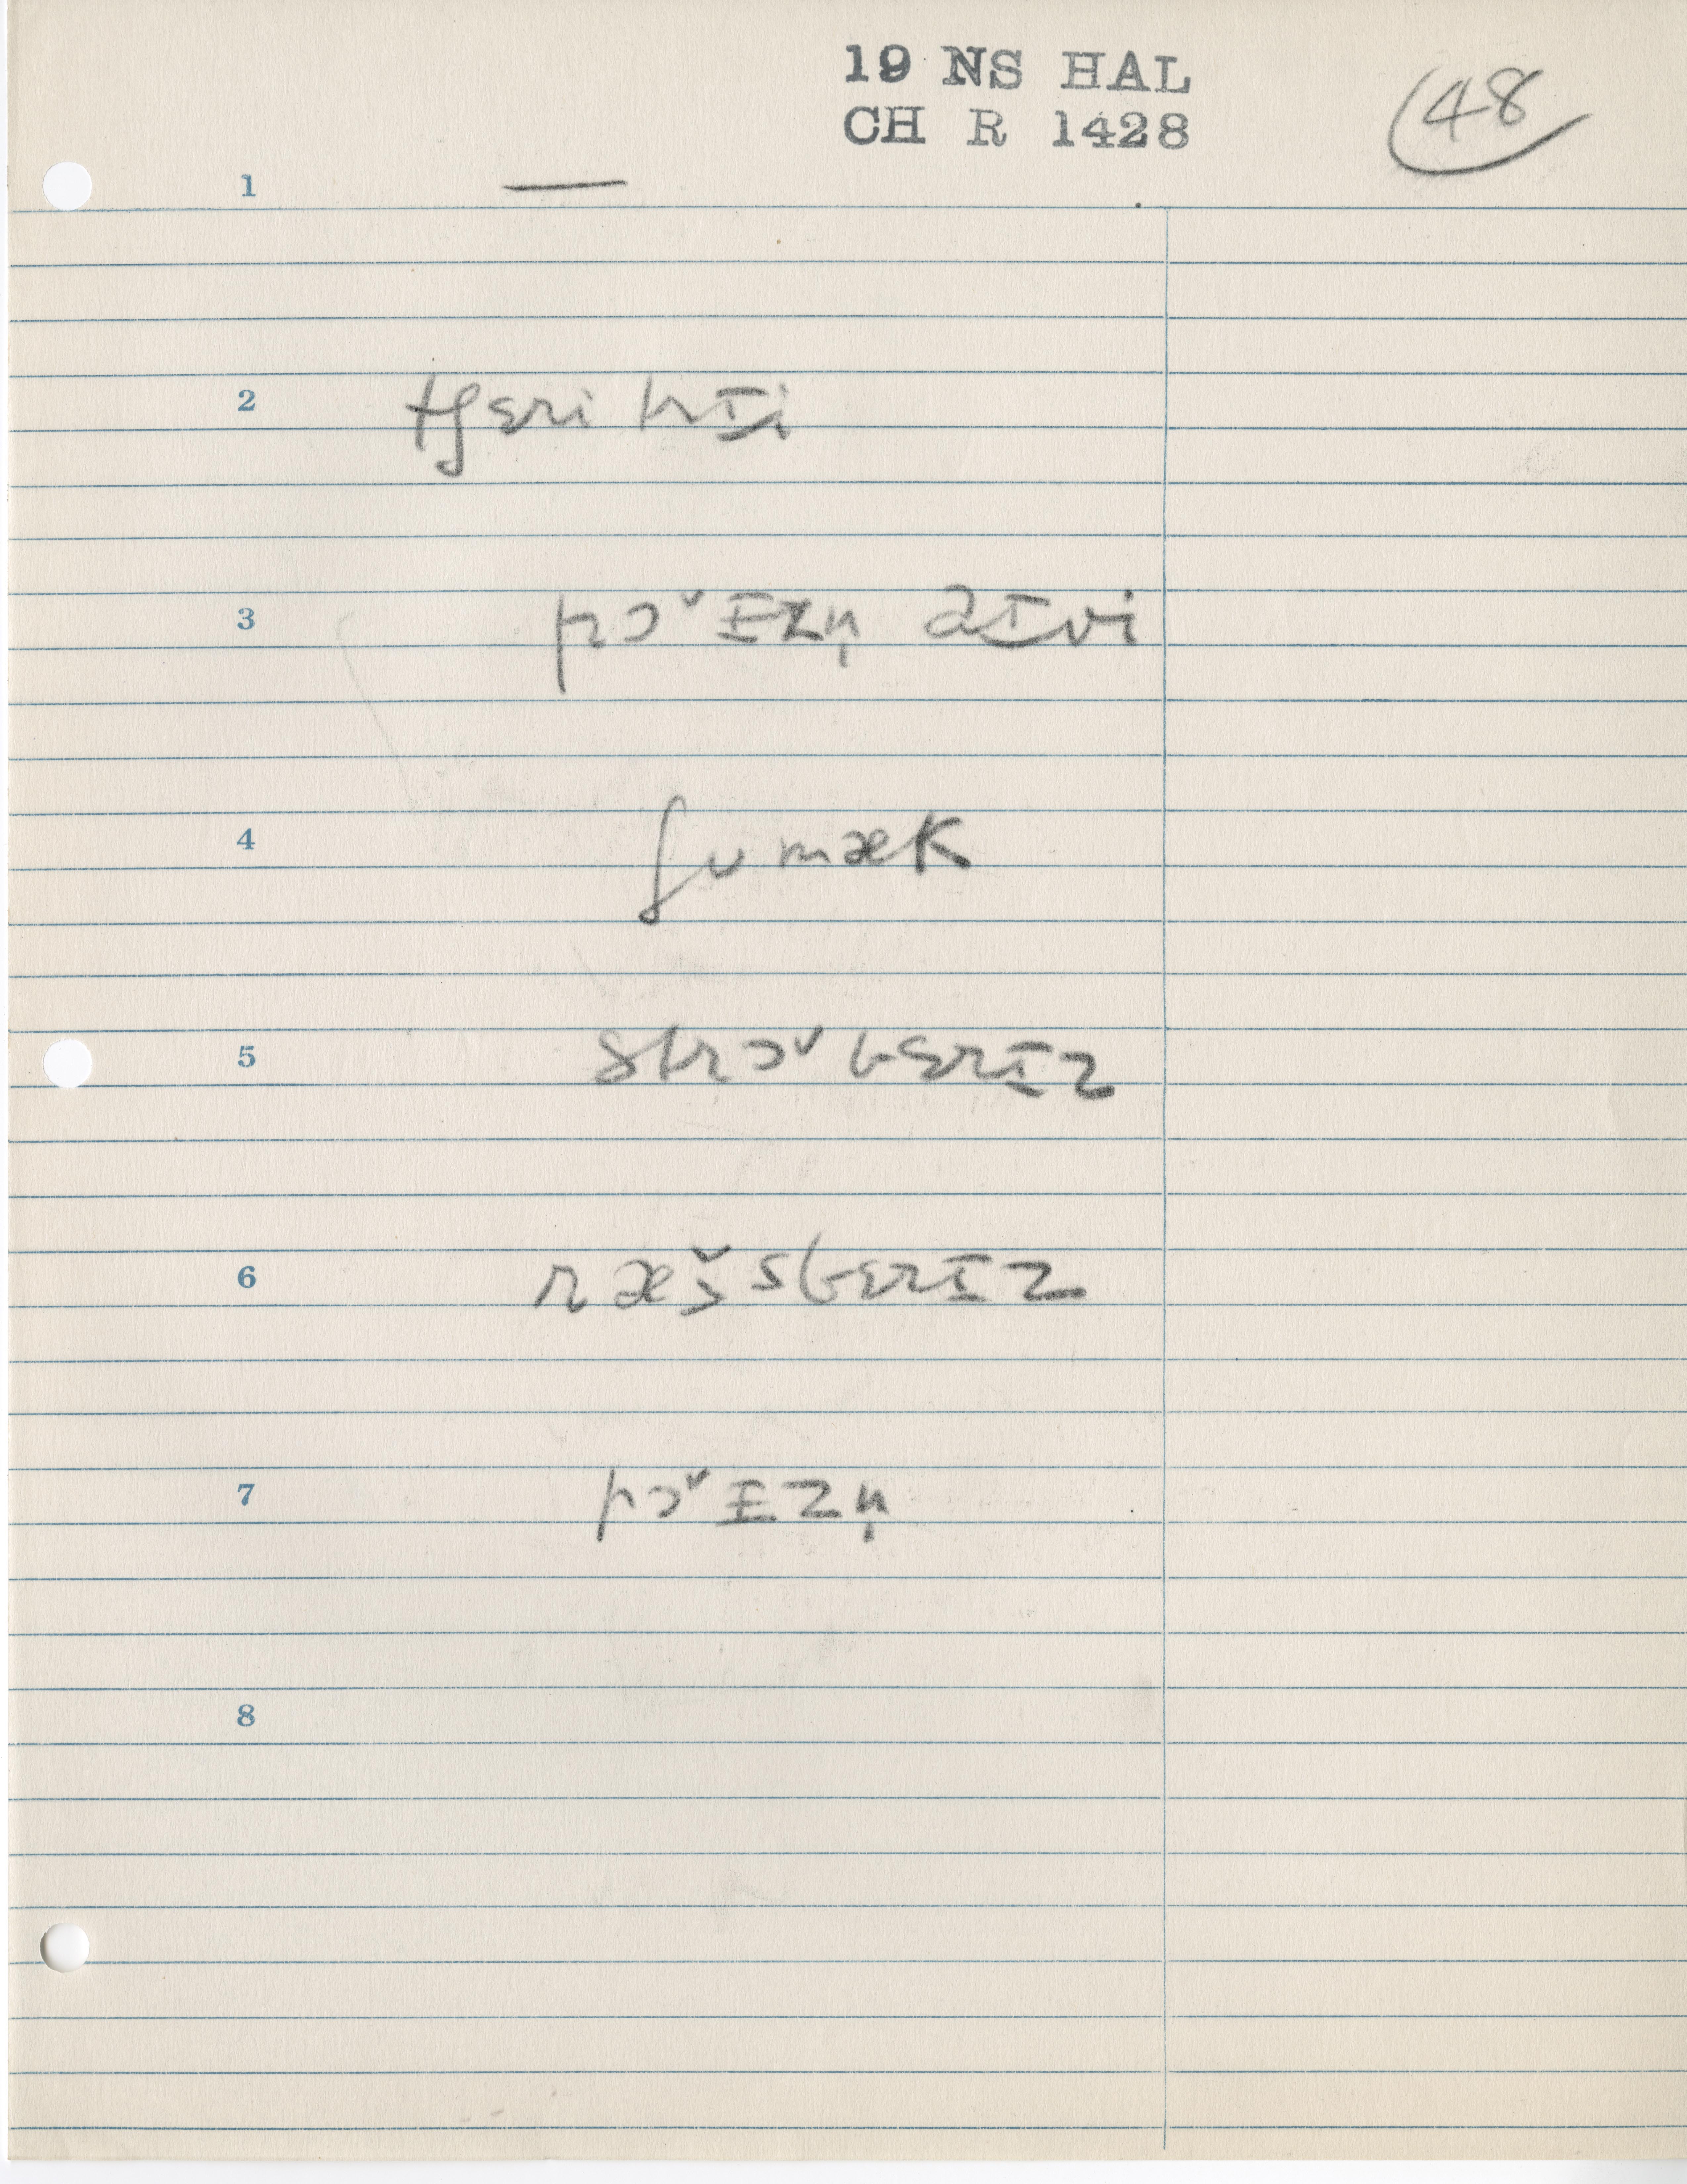 19 NS HAL
CH R 1428
48
1 —
2 tʃɛri trɪi
3 pɔˇɪzn̩ aɪvi
4 ʃumæk
5 strɔˇbɛrɪz
6 ræž̬sbɛrɪz
7 pɔˇɪzn̩
8